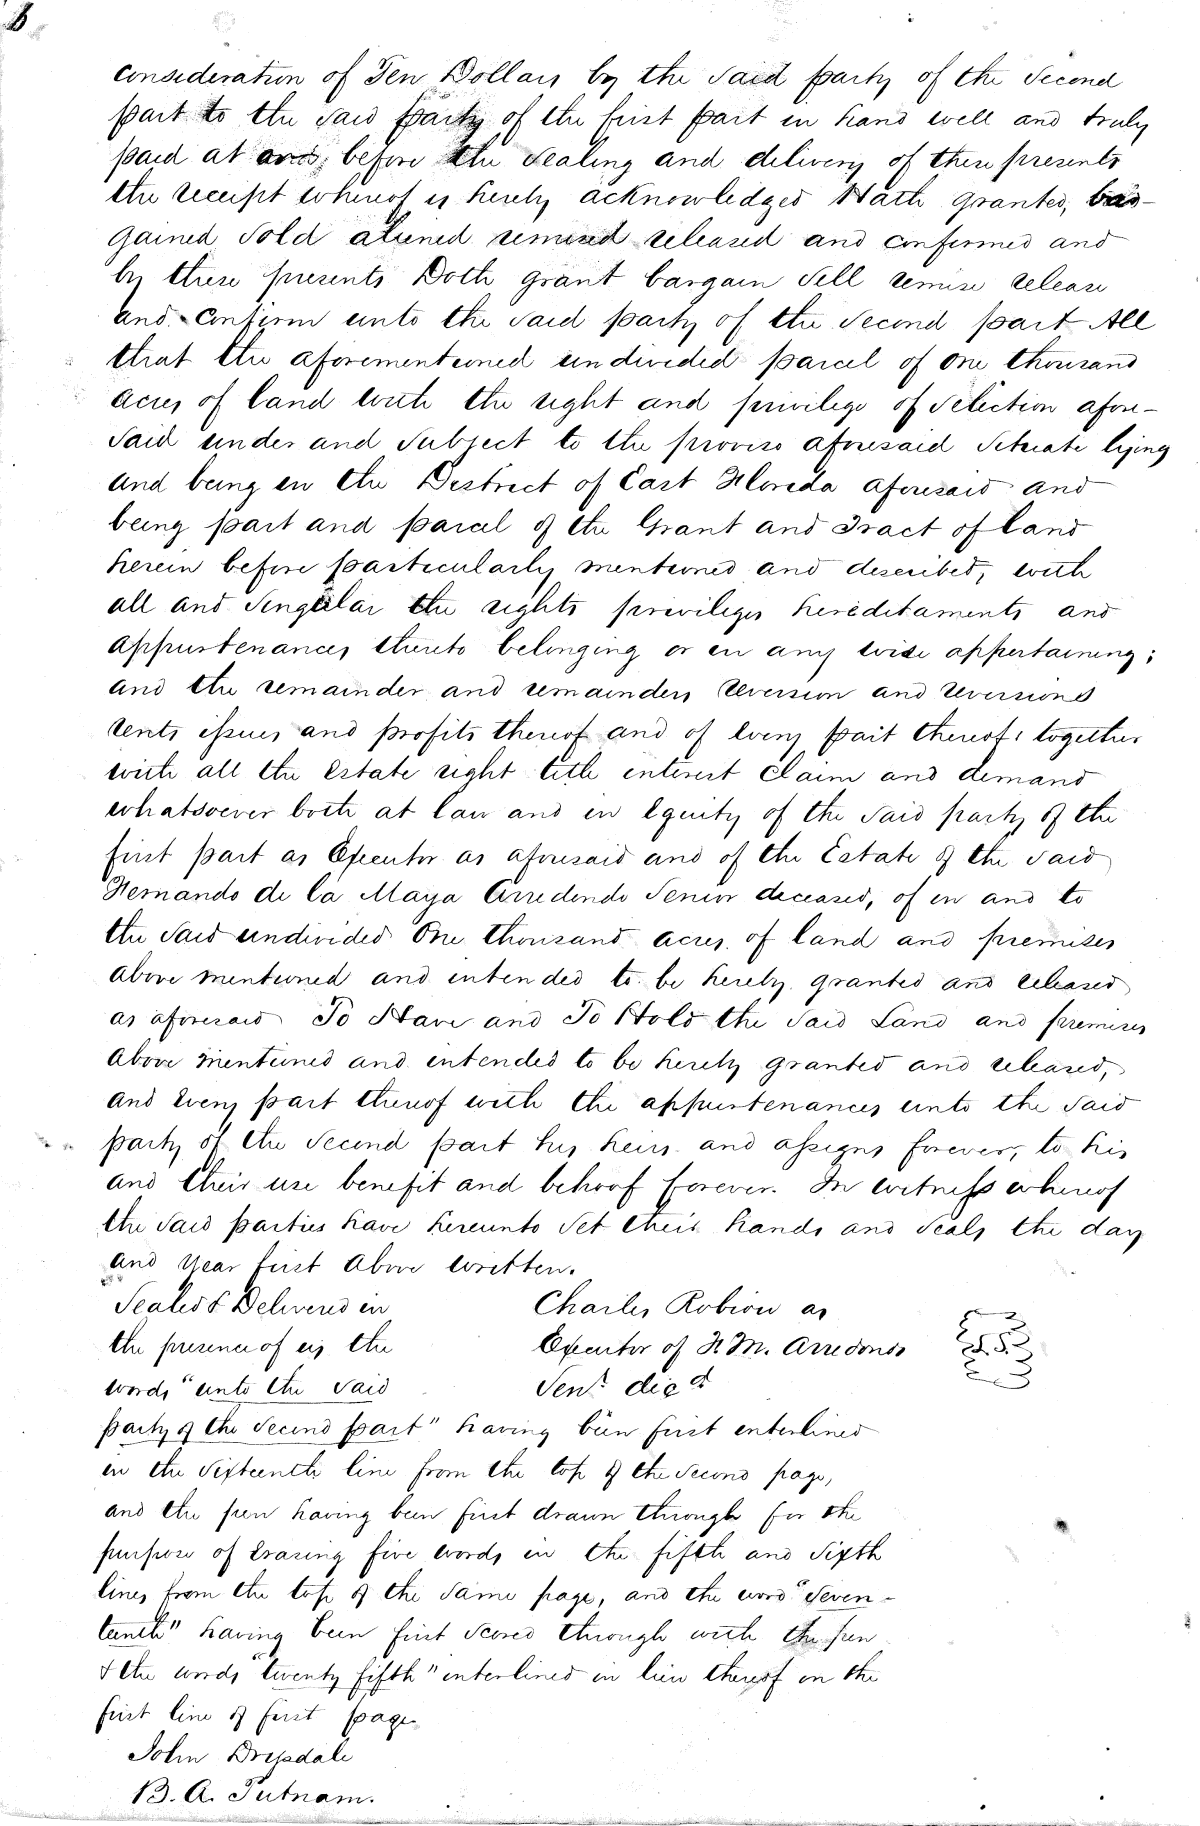 8
consideration of Ten Dollars by the said party of the second
part to the said party of the first part in hand well and truly
paid at and, before the sealing and delivery of these presents
the receipt whereof is hereby acknowledged Hath granted, bar-
gained, Sold aliened remised released and confirmed and
by these presents Doth grant bargain Sell remise release
and Confirm unto the said party of the Second part All
that the aforementioned undivided parcel of one thousand
acres of land with the right and privilege of Selection afore-
said under and Subject to the proviso aforesaid Situate lying
and being in the District of East Florida aforesaid and
being part and parcel of the Grant and Tract of land
herein before particularly mentioned and described, with
all and Singular the rights privileges hereditaments and
appurtenances thereto belonging or in any wise appertaining;
and the remainder and remainders Reversion and Reversions
rents issues and profits thereof and of every part thereof, together
with all the Estate right title interest Claim and demand
whatsoever both at law and in Equity of the said party of the
first part as Executor as aforesaid and of the Estate of the said
Hernando de la Maya Arredondo Senior deceased, of in and to
the said undivided One thousand acres of land and premises
above mentioned and intended to be hereby granted and released
as aforesaid To Have and To Hold the said Land and premises
above mentioned and intended to be hereby granted and released,
and Every part thereof with the appurtenances unto the said
party of the Second part his heirs and assigns forever, to his
and their use benefit and behoof forever. In witness whereof
the said parties have hereunto Set their hands and Seals the day
and Year first above written.
Sealed & Delivered in
the presence of us, the
words "unto the said
party of the Second part" having been first interlined
in the Sixteenth line from the top of the Second page,
and the pen having been first drawn through for the
purpose of Erasing five words in the fifth and Sixth
lines from the top of the Same page, and the word "Seven-
teenth" having been first Scored through with the pen
& the words "twenty fifth" interlined in lieu thereof in the
first line of first page.
Charles Robiou as
Executor of F. M. Arredondo
Senr. decd
L.S.
John Drysdale
B. A. Putnam.